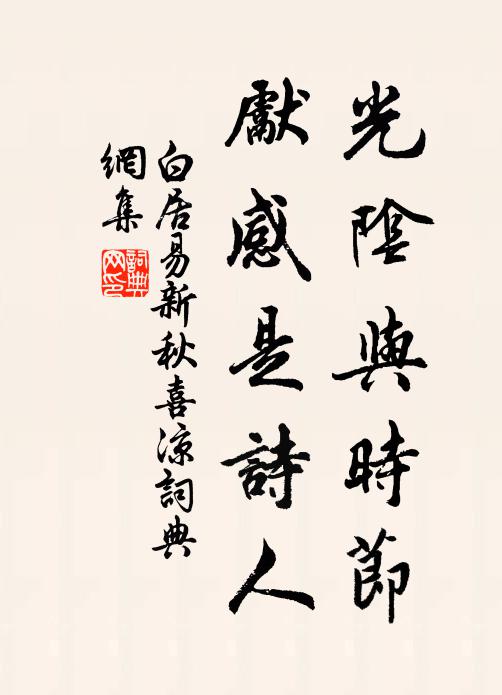 光陰與時節
獻感是詩人
白居易新秋喜涼詞典
網集
詞典
网印